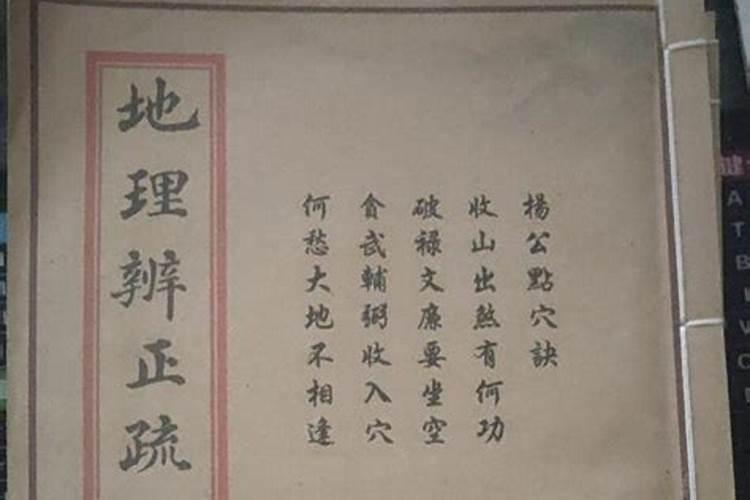 楊公點穴訣
收山出煞有何功
破祿文廉要坐空
貪武輔弼收入穴
何愁大地不相逢
地理辨正疏